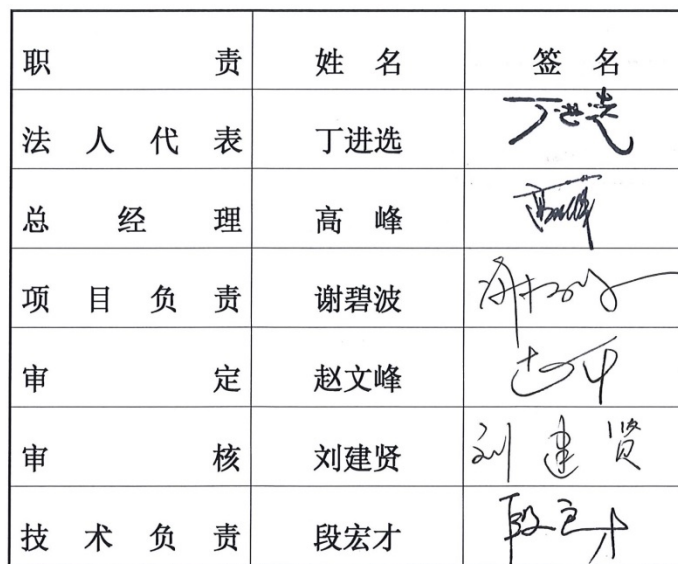 职责 姓名 签名
法人代表 丁进选 丁进选
总经理 高峰
项目负责 谢碧波
审定 赵文峰
审核 刘建贤 刘建贤
技术负责 段宏才 段宏才